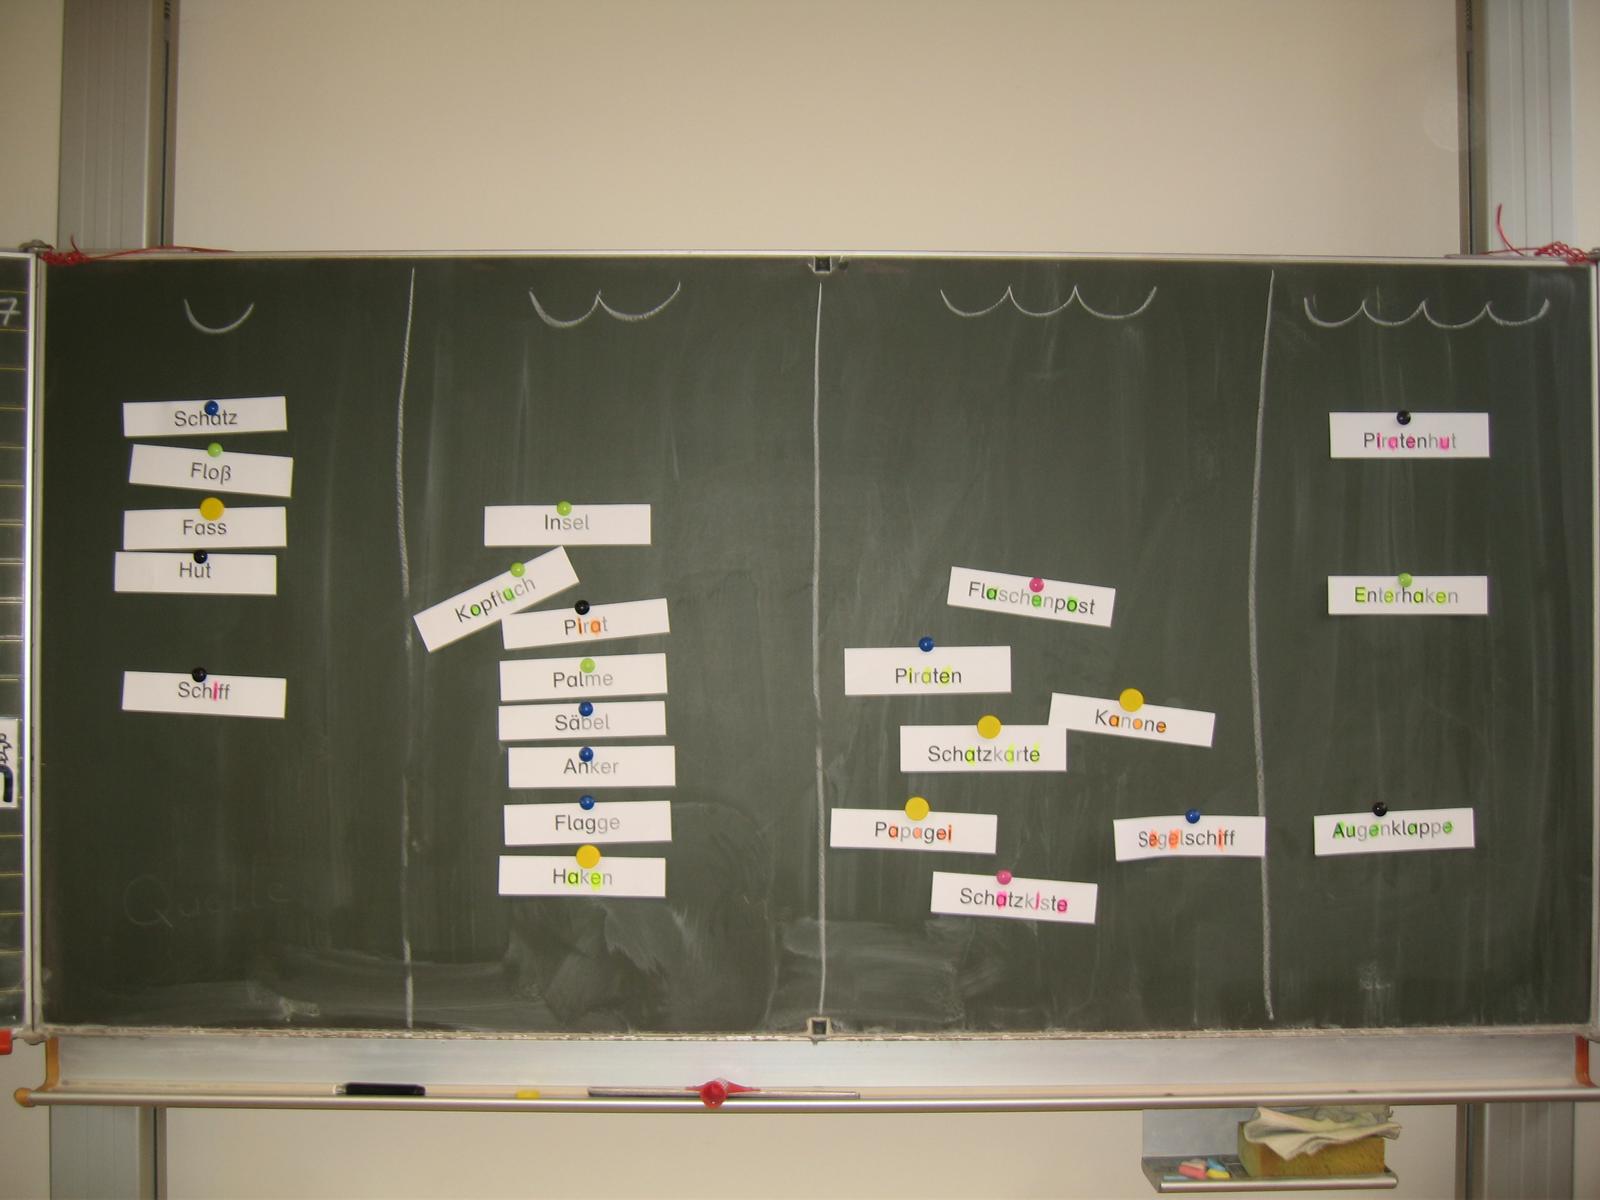 7
Schatz
Floß
Fass
Hut
Schiff
Insel
Kopftuch
Pirat
Palme
Säbel
Anker
Flagge
Haken
Flaschenpost
Piraten
Kanone
Schatzkarte
Papagei
Segelschiff
Schatzkiste
Piratenhut
Enterhaken
Augenklappe